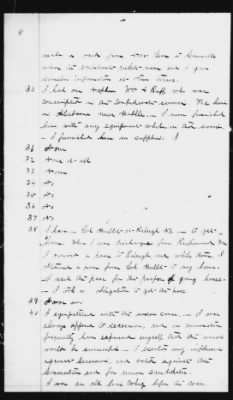 9
made a raid from New Bern to
when the ... and I gave
similar information at other times.
33 I had one nephew Wm H Ruff who was
conscripted in the Confederate service. He lives
in Alabama near Mobile. I never furnished
him with any equipment while in that service
I furnished him no supplies.
31 None
32 None at all
33 None
34 No
35 No
36 No
37 No
38 I have - Col Mallett at Raleigh NC - to get
home. When I was discharged from Richmond Va
I received a pass to Raleigh, and while there I
obtained a pass from Col Mallett to my home.
I used the pass for the purpose of going home
I took no obligation to get the pass.
39 I am not
40 I sympathized with the union cause. I was
always opposed to secession, and in conversation
frequently have expressed myself that the union
would be successful. I exerted my influence
against secession, and voted against the
Convention and for union candidates.
I was an old line Whig before the war